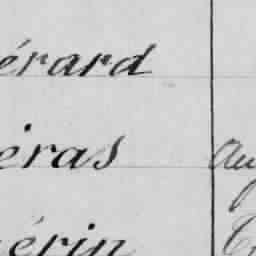 érard
éras Au
érin